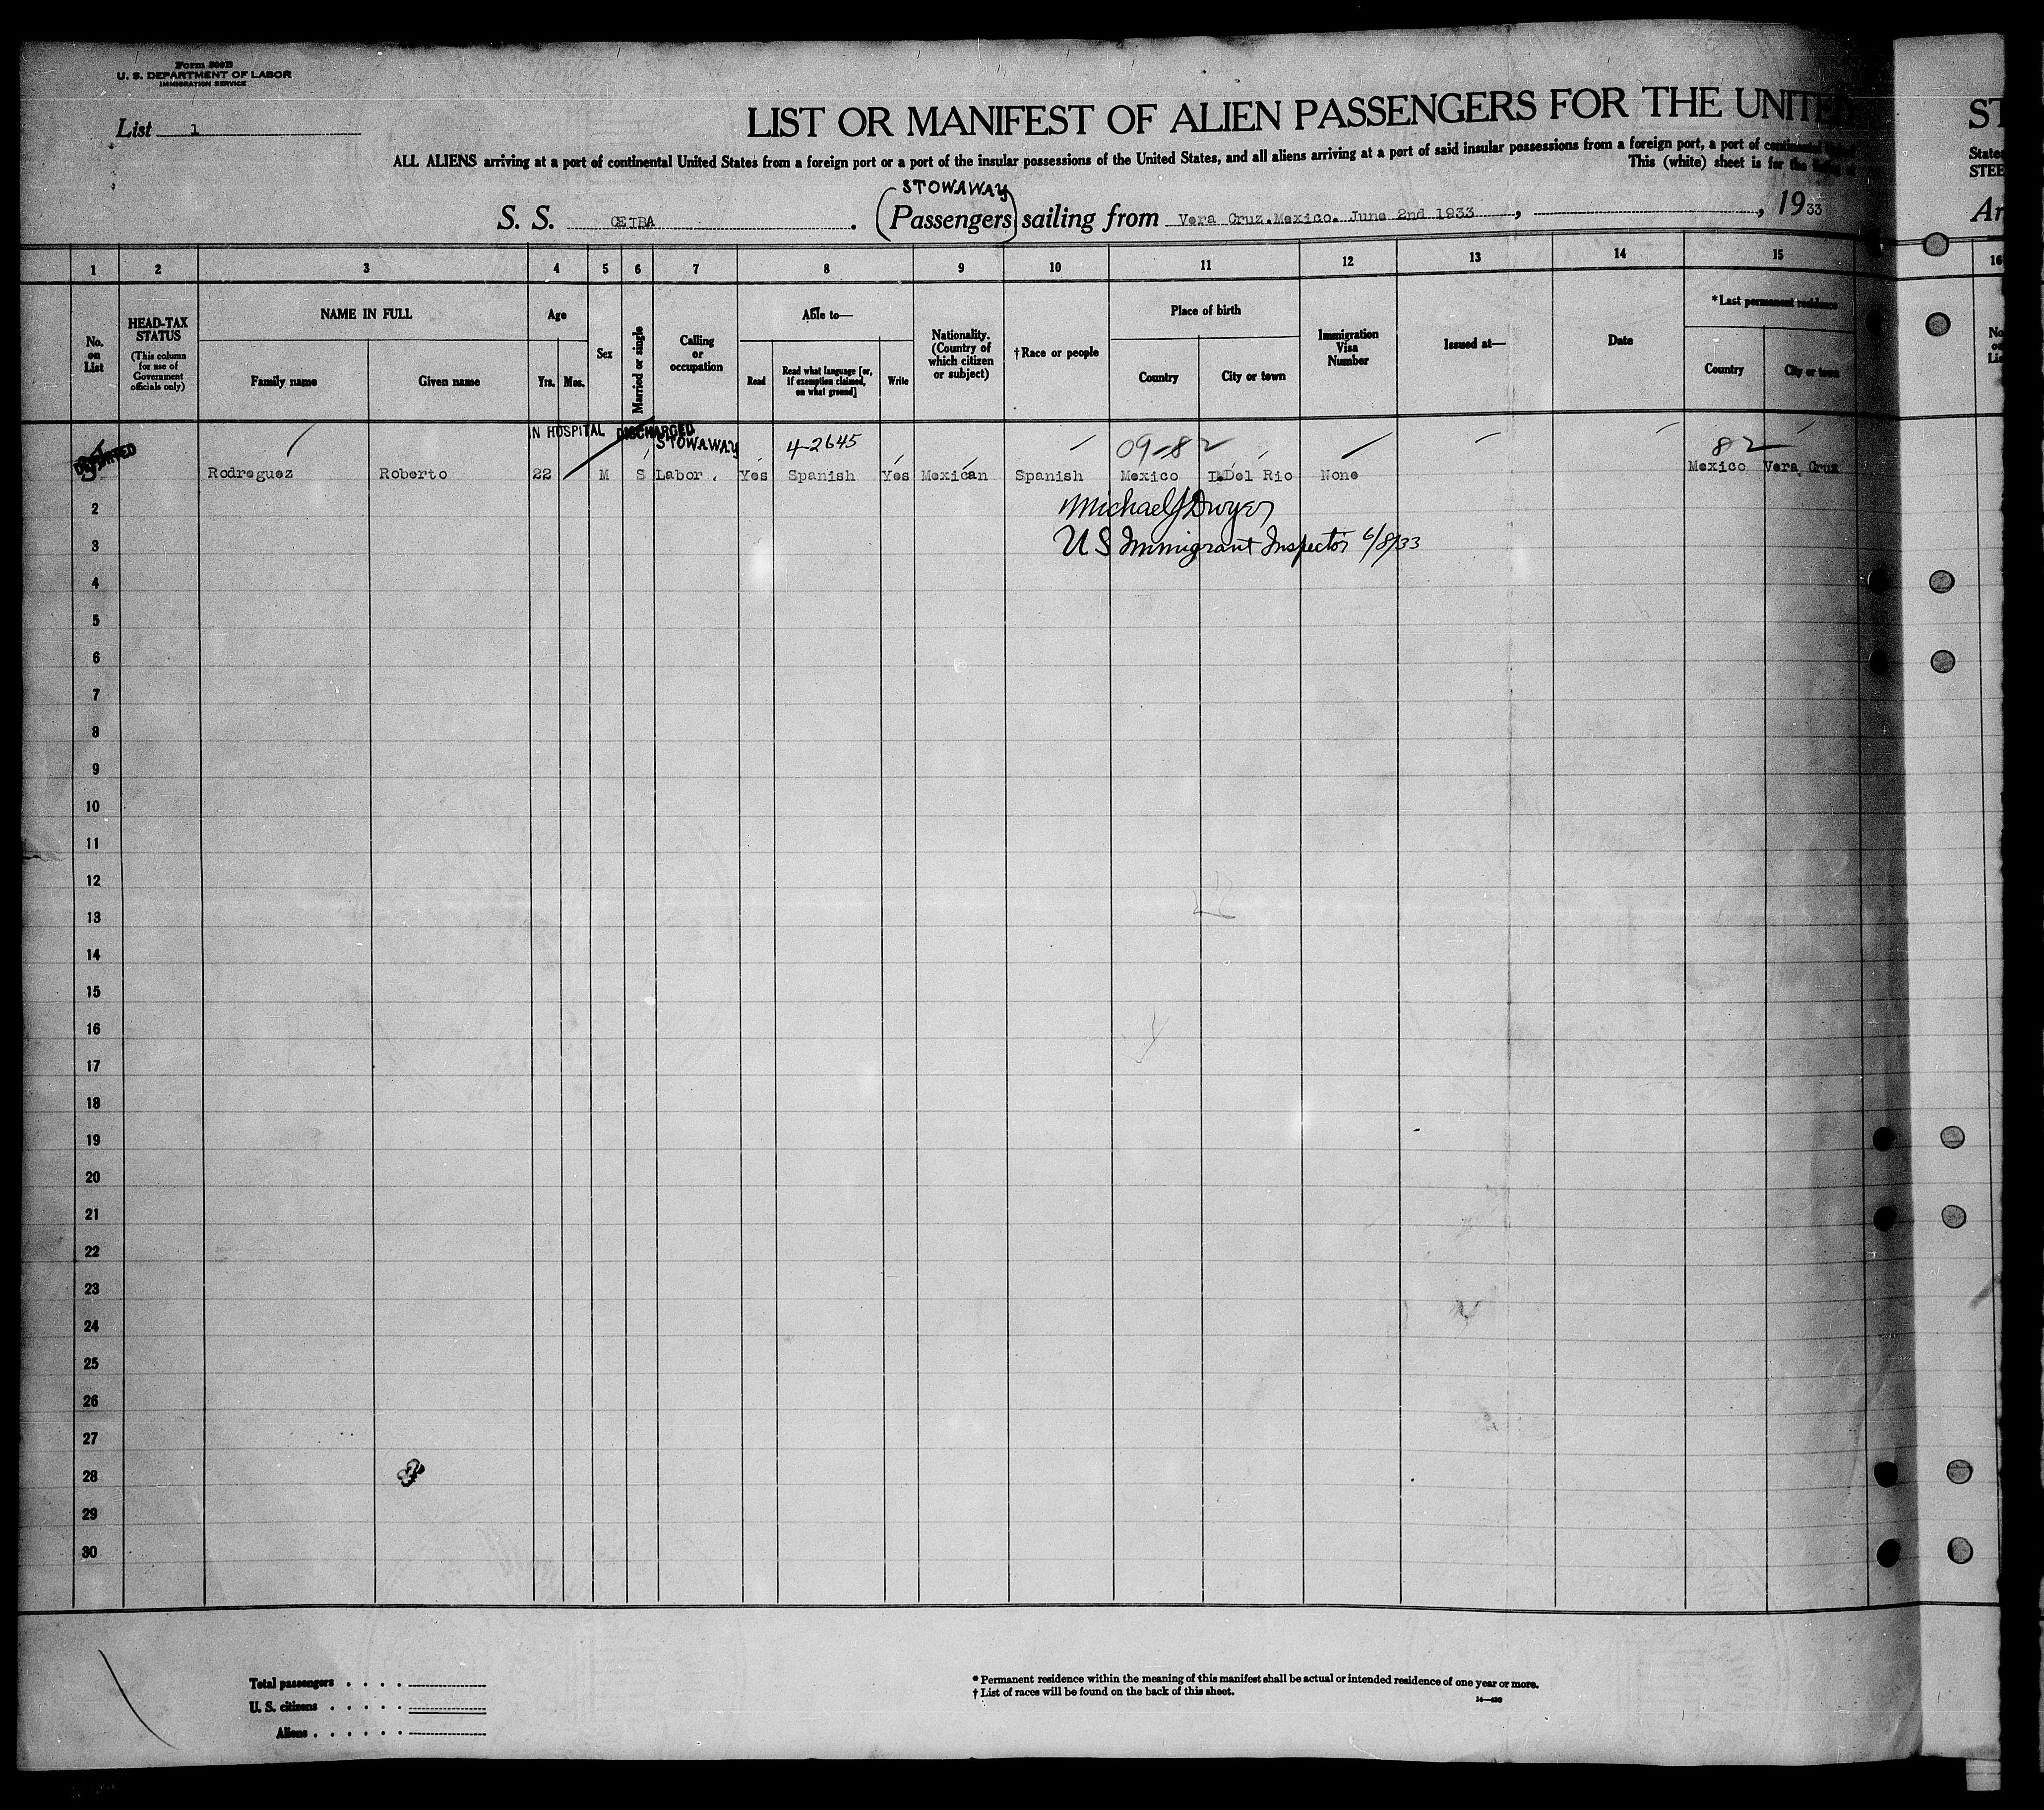 Form 500B
U. S. DEPARTMENT OF LABOR
IMMIGRATION SERVICE
List 1
LIST OR MANIFEST OF ALIEN PASSENGERS FOR THE UNITED
ST
ALL ALIENS arriving at a port of continental United States from a foreign port or a port of the insular possessions of the United States, and all aliens arriving at a port of said insular possessions from a foreign port, a port of continental
States
This (white) sheet is for the
STEE
STOWAWAY
S. S. CEIBA. (Passengers) sailing from Vera Cruz.Mexico. June 2nd 1933, , 1933
Ar
1 2 3 4 5 6 7 8 9 10 11 12 13 14 15 16
No. on List
HEAD-TAX STATUS
(This column for use of Government officials only)
NAME IN FULL
Family name
Given name
Age
Yrs. Mos.
Sex
Married or single
Calling or occupation
Able to—
Read
Read what language [or, if exemption claimed, on what ground]
Write
Nationality. (Country of which citizen or subject)
†Race or people
Place of birth
Country
City or town
Immigration Visa Number
Issued at—
Date
*Last permanent residence
Country
City or town
No
on
Lis
IN HOSPITAL DISCHARGED
DEPORTED
STOWAWAY
4-2645
09-82
82
Rodreguez Roberto 22 M S Labor. Yes Spanish Yes Mexican Spanish Mexico Del Rio None Mexico Vera Cruz
Michael J Dwyer
2
US Immigrant Inspector 6/8/33
3
4
5
6
7
8
9
10
11
12
13
14
15
16
17
18
19
20
21
22
23
24
25
26
27
28
29
30
Total passengers . . . .
U. S. citizens . . . . .
Aliens . . . . . .
* Permanent residence within the meaning of this manifest shall be actual or intended residence of one year or more.
† List of races will be found on the back of this sheet.
14—490